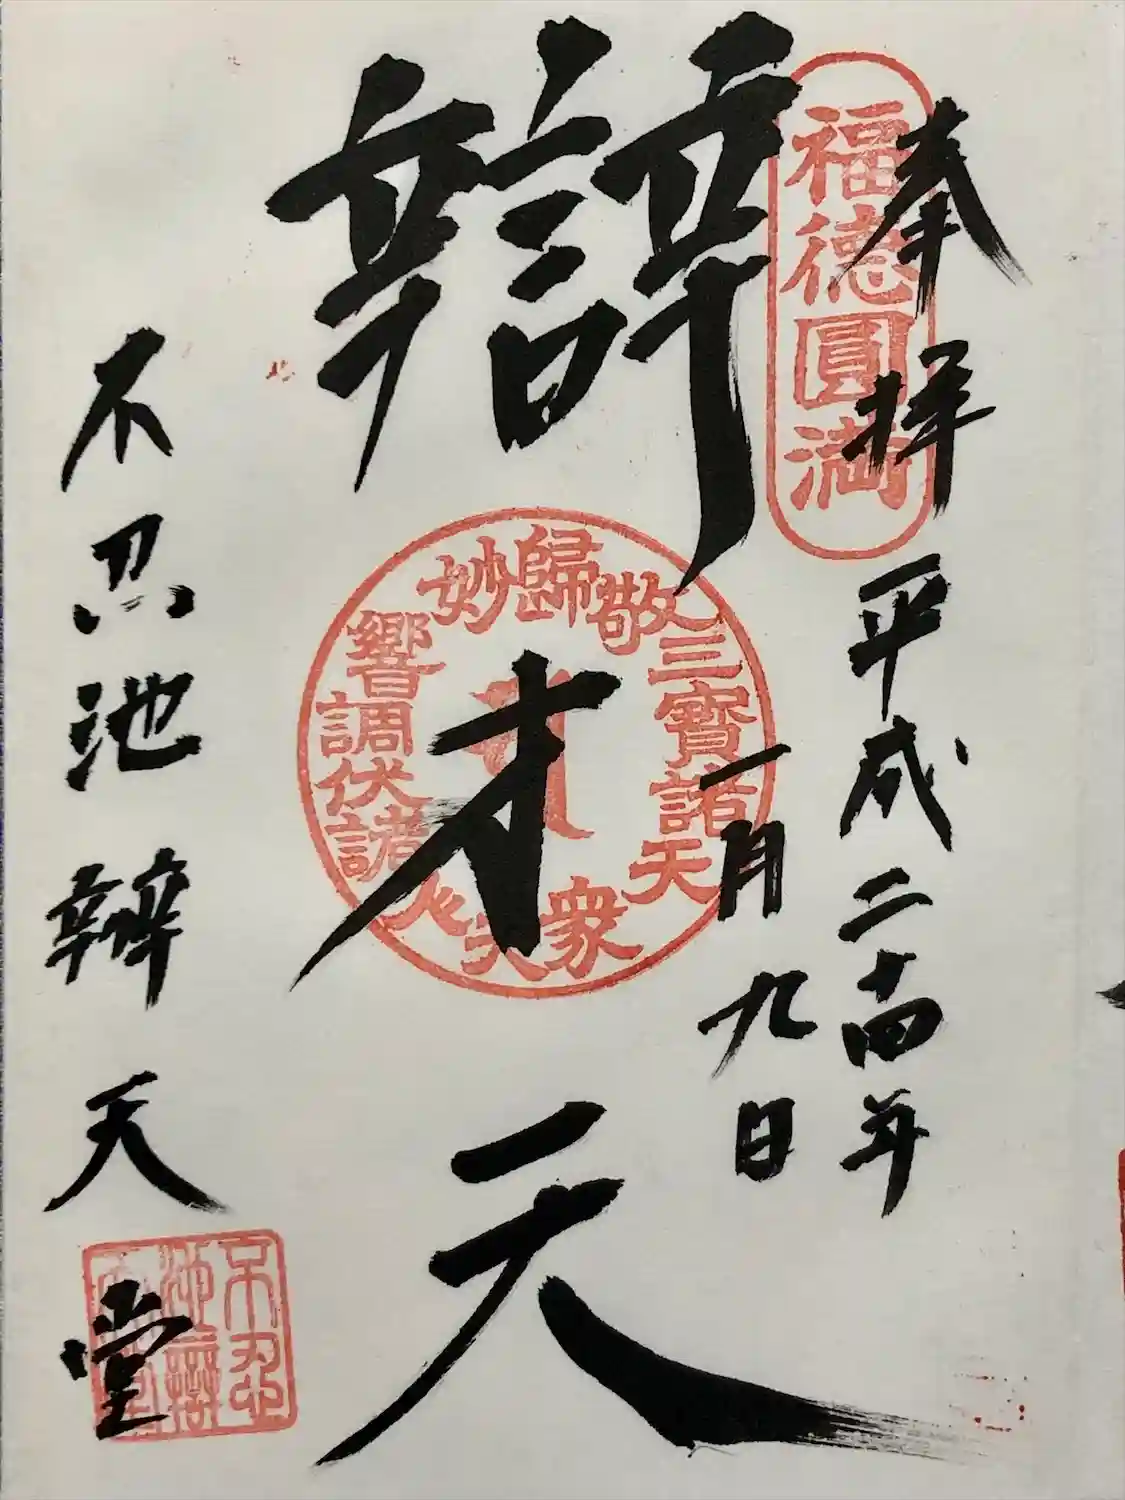 奉拝
平成二十四年
一月九日
福徳圓満
辯才天
歸敬三寶諸天衆
妙響調伏諸
不忍池辯天堂
不忍
池辯